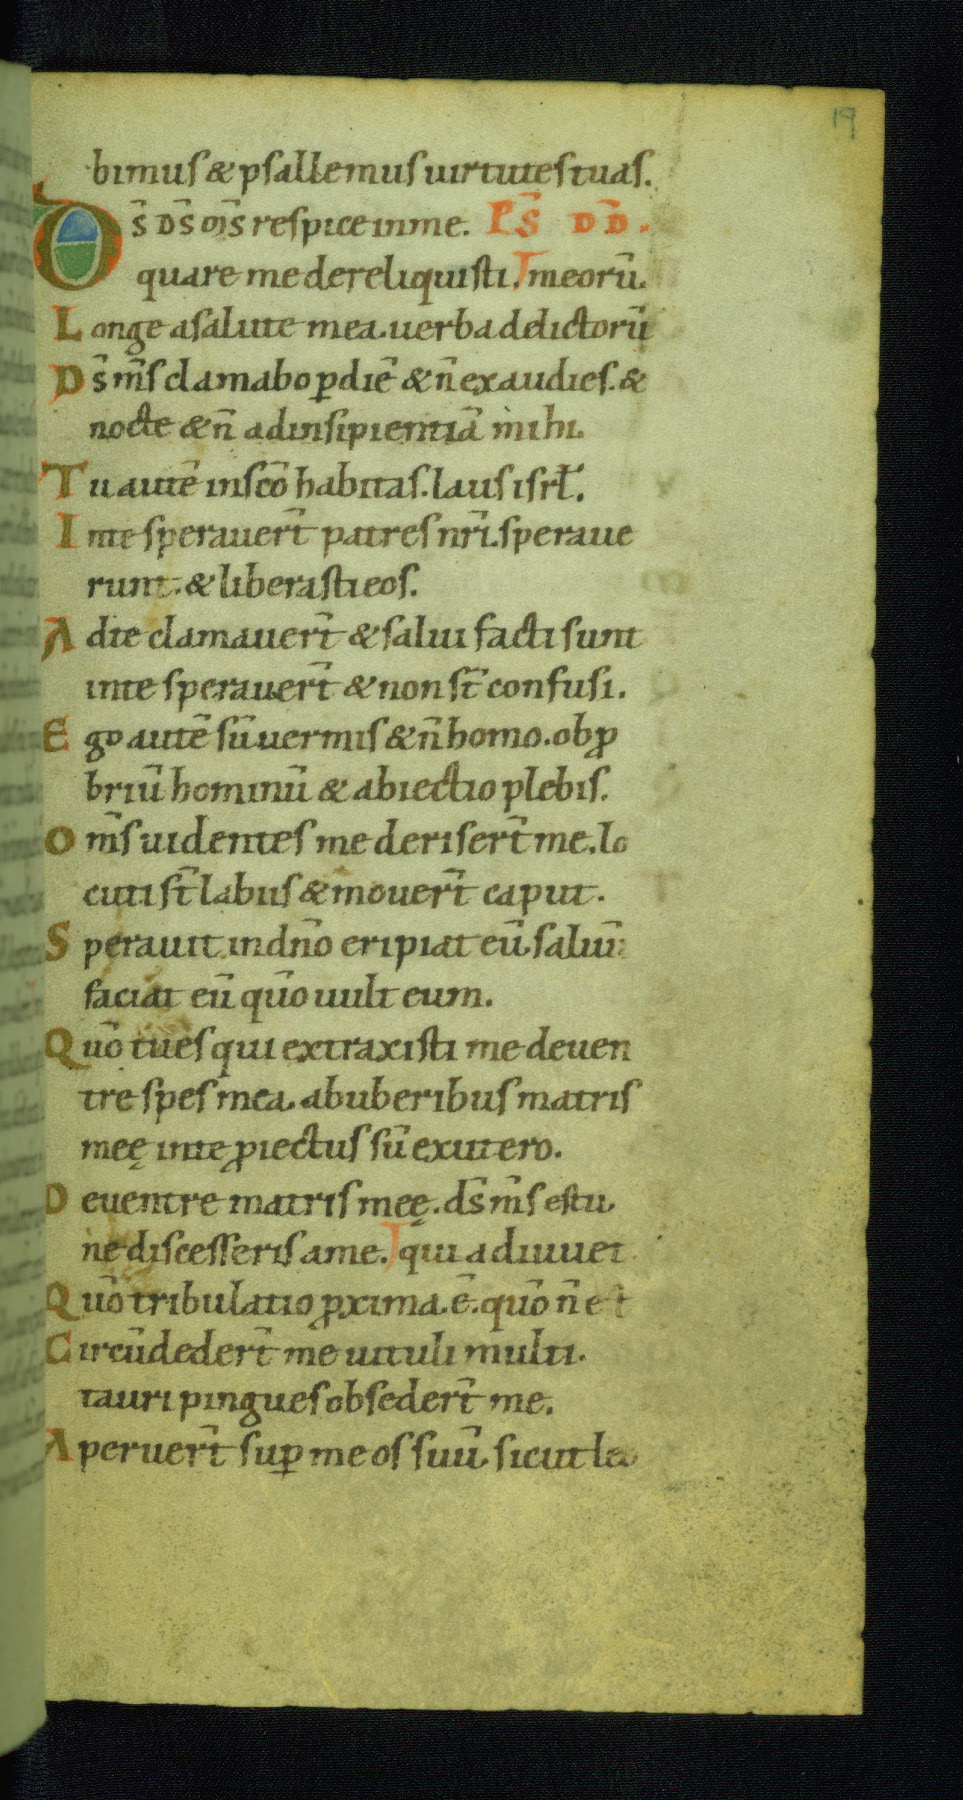 19
bimus & psallemus uirtutes tuas.
Ds̄ ds̄ m̄s respice in me. Ps̄ DD.
quare me dereliquisti. meorū.
Longe a salute mea. uerba delictorū
Ds̄ m̄s clamabo p̲ diē & n̄ exaudies. &
nocte & n̄ ad insipientiā mihi.
Tu autē in scō habitas. laus isrł.
In te sperauer̄t patres nr̄i. speraue
runt. & liberasti eos.
Ad te clamauer̄t & salui facti sunt
in te sperauer̄t & non st̄ confusi.
Ego autē sū uermis & n̄ homo. obꝓ
briū hominū & abiectio plebis.
Om̄s uidentes me deriser̄t me. lo
cuti st̄ labiis & mouer̄t caput.
Sperauit in dn̄o eripiat eū. saluū
faciat eū quō uult eum.
Quō tu es qui extraxisti me de uen
tre spes mea. ab uberibus matris
meę in te ꝓiectus sū ex utero.
De uentre matris meę. ds̄ m̄s es tu.
ne discesseris a me. qui adiuuet
Quō tribulatio ꝓxima. ē. quō n̄ e t
Circūdeder̄t me uituli multi.
tauri pingues obseder̄t me.
Aperuer̄t sup̲ me os suū. sicut leo